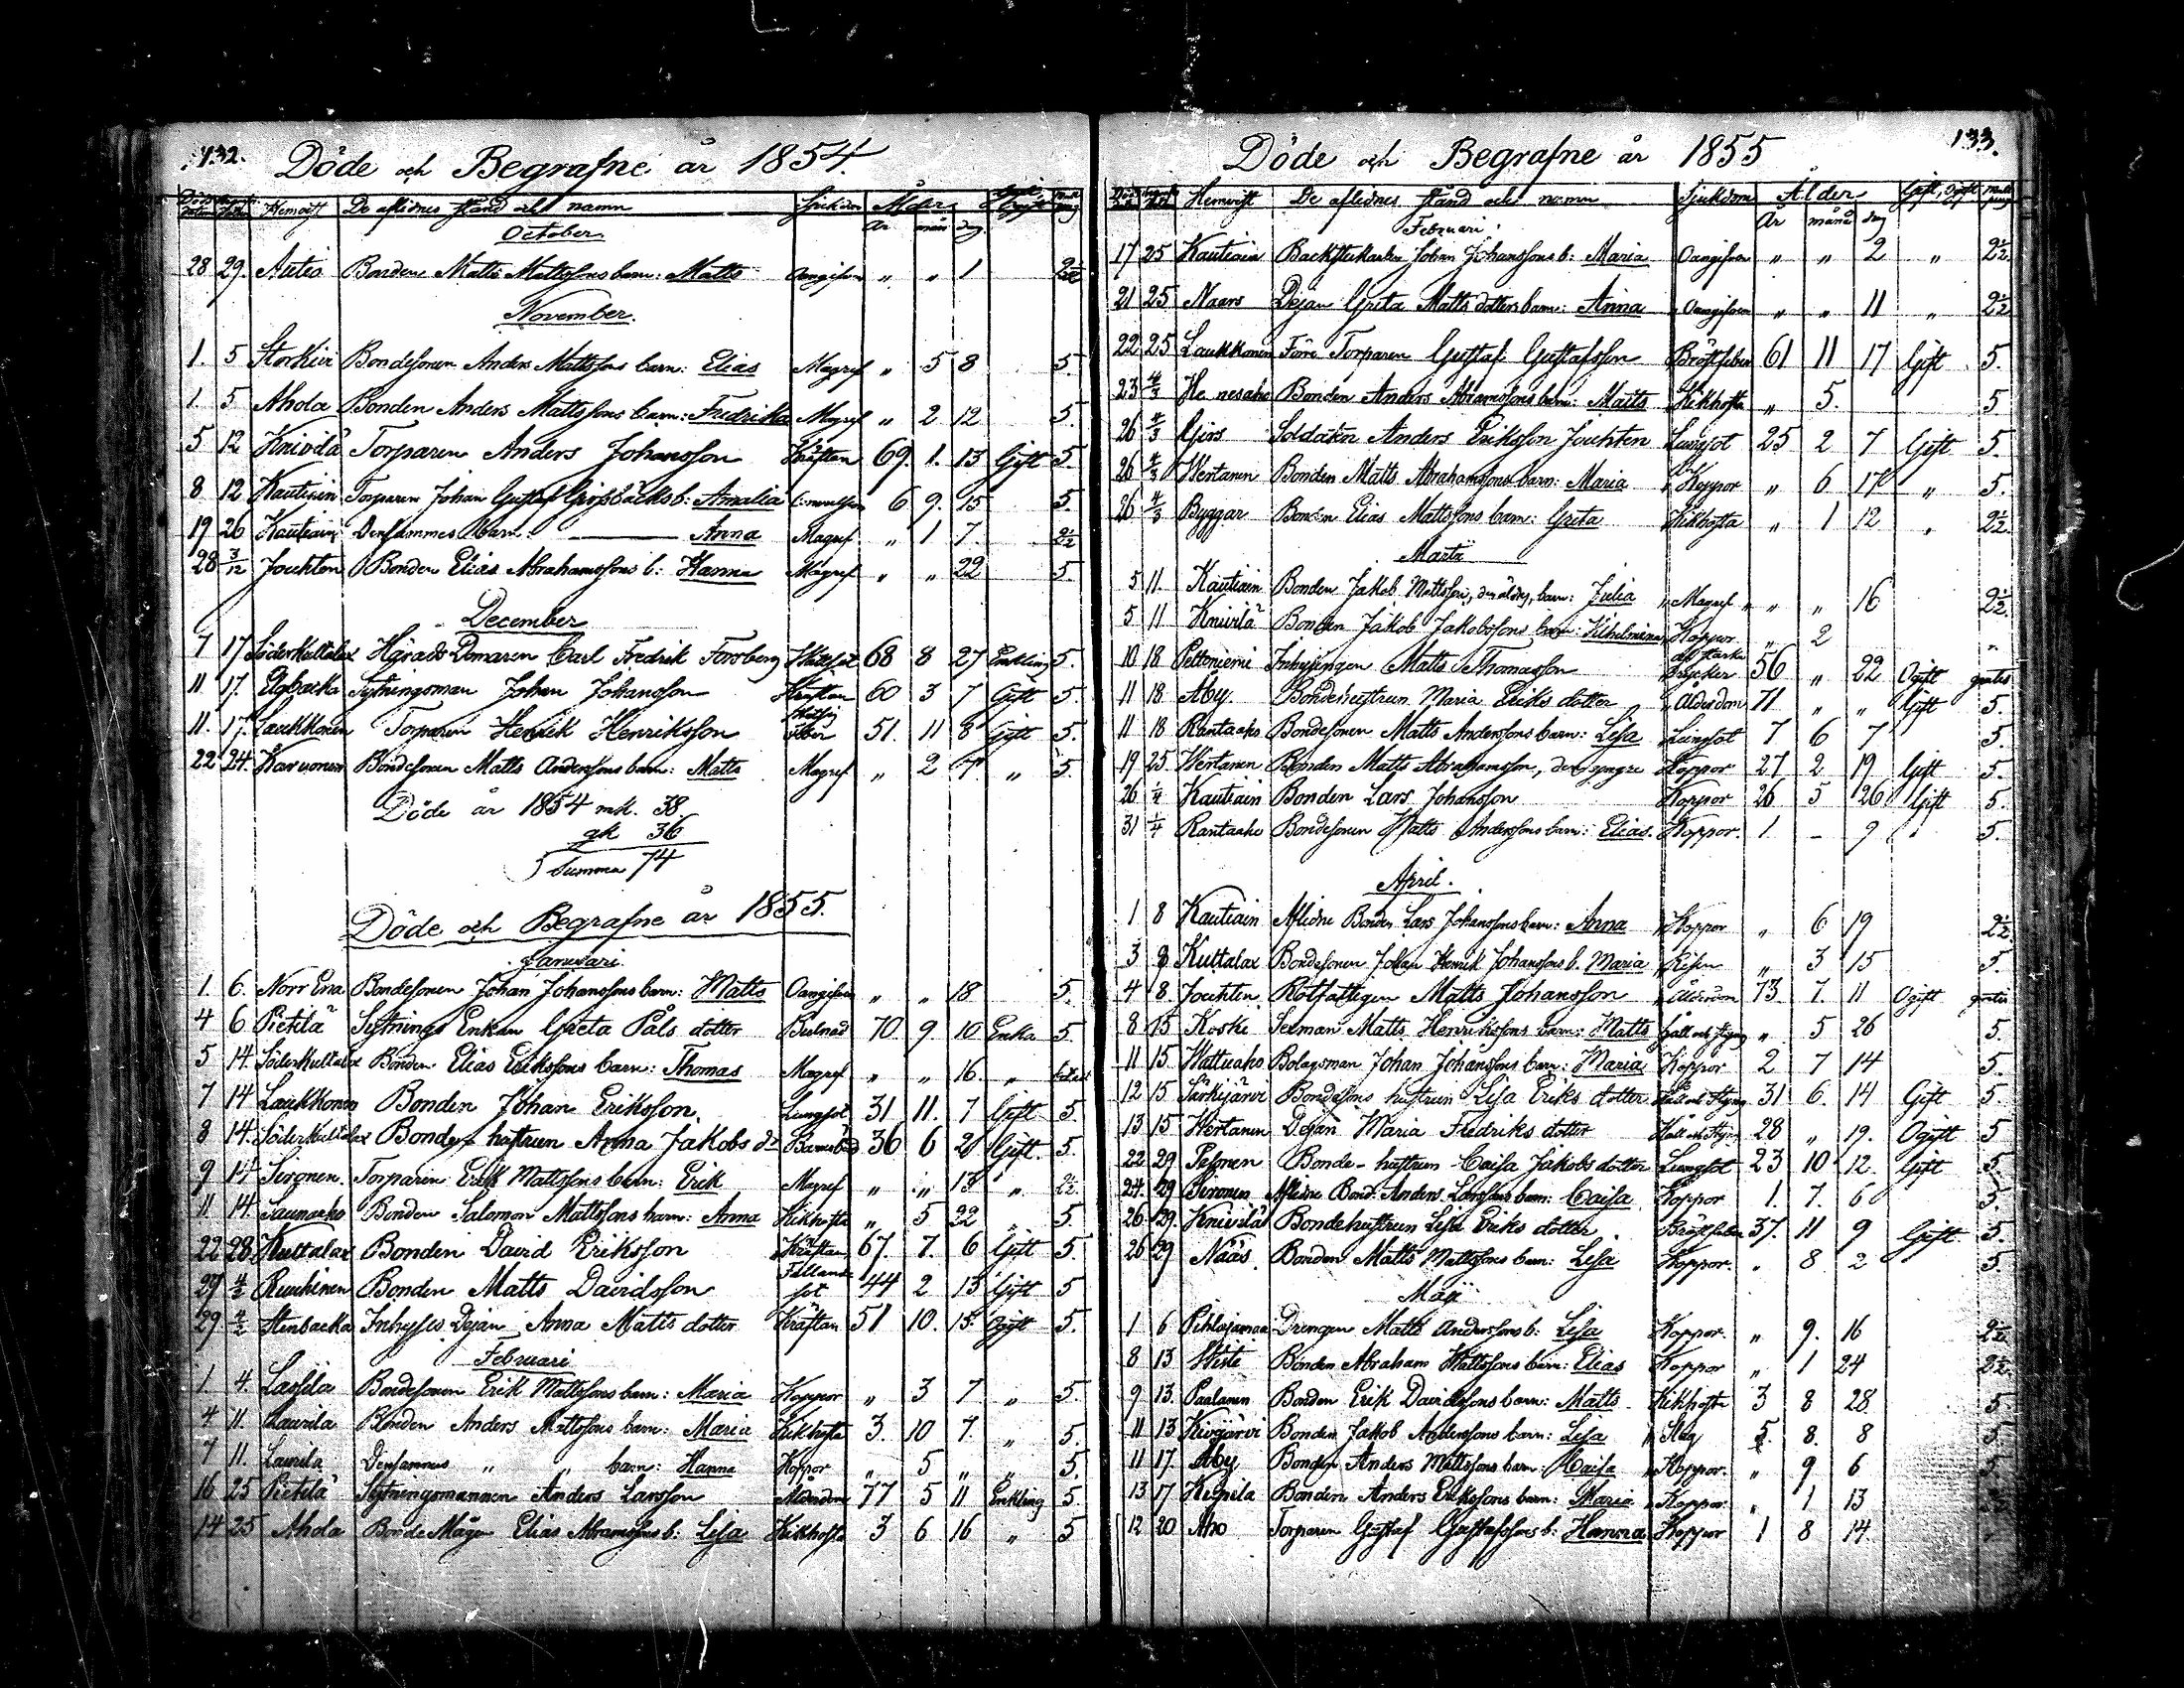 132.
Döde och Begrafne år 1854.
Hemvist De aflidnes stånd och namn Sjukdom Ålder
År mån dag
October
28 29. Autio Bonden Matts Mattssons barn: Matts Oangifven " " 1 2½
November.
1. 5 Storkivi Bondesonen Anders Mattssons barn: Elias Magref " 5 8 5.
1. 5 Ahola Bonden Anders Mattssons barn: Fredrika Magref " 2 12 5.
5 12 Knivilä Torparen Anders Johansson Kräftan 69. 1. 13 Gift 5.
8 12 Kautiain Torparen Johan Gustaf b: Amalia 6 9. 15 5.
19 26 Kautiain Densammes barn: Anna Magref. " 1 7. 2½
28 3/12 Jouchten Bonden Elias Abrahamssons b: Hanna Magref " " 22 5.
December
7 17 Söderkultalax Härads Domaren Carl Fredrik Forsberg 68 8 27 Enkling 5.
11 17. Elgbacka Sytningsman Johan Johansson Kräftan 60 3 7 Gift 5.
11. 17. Laukkonen Torparen Henrik Henriksson 51. 11 8 Gift 5.
22 24. Karvonen Bondesonen Matts Anderssons barn: Matts Magref " 2 7 " 5.
Döde år 1854 mk. 38.
qk 36
Summa 74
Döde och Begrafne år 1855.
Januari.
1. 6. Norr Ena Bondesonen Johan Johanssons barn: Matts Oangifven " " 18 5.
4 6 Pietilä Sytnings Enkan Greta Påls dotter 70. 9. 10 Enka 5
5 14. Söderkultalax Bonden Elias Erikssons barn: Thomas Magref " " 16. "
7 14 Laukkonen Bonden Johan Eriksson. Lungsot 31 11. 7 Gift 5.
8 14. Söderkultalax Bonde hustrun Anna Jakobs dr Barnsbörd 36 6 20 Gift. 5.
9 14 Sironen. Torparen Erik Mattssons barn: Erik Magref " " 13 " 2½
11 14. Saunaaho Bonden Salomon Mattssons barn: Anna Kikhosta " 5 22 " 5.
22 28 Kultalax Bonden David Eriksson Kräftan 67. 7. 6 Gift 5.
27 4/2 Ruuhinen Bonden Matts Davidsson Fallande sot 44 2 13 Gift 5
29 4/2 Stenbacka Inhyses Pigan Anna Matts dotter Kräftan 51 10. 15. Ogift 5.
Februari
1. 4. Lassila Bondesonen Erik Mattssons barn: Maria Koppor " 3 7 " 5.
4 11. Laurila Bonden Anders Mattssons barn: Maria Kikhosta 3. 10 7. " 5.
7 11. Laurila Densammes " " barn: Hanna Koppor " 5 " " 5.
16 25 Pietilä Sytningsmannen Anders Larsson Ålderdom 77 5 11 Enkling 5.
14 25 Ahola Bonde Mågen Elias Abramssons b: Lisa Kikhosta 3 6 16 " 5
133.
Döde och Begrafne år 1855
Hemvist De aflidnes stånd och namn Sjukdom Ålder Gift, Ogift
År månd dag
Februari.
17 25 Kautiain Backstukarlen Johan Johanssons b: Maria Oangifven " " 2 " 2½
21 25 Naars Pigan Greta Matts dotters barn: Anna Oangifven " " 11 " 2½
22 25 Laukkonen Förre Torparen Gustaf Gustafsson Bröstfeber 61 11 17 Gift 5.
23 4/3 Bonden Anders Abramssons barn: Matts Kikhosta " 5. 5
26 4/3 Gers Soldaten Anders Eriksson Jouchten Lungsot 25 2 7 Gift 5.
26 4/3 Wertanen Bonden Matts Abrahamssons barn: Maria Koppor " 6 17 " 5.
26 4/3 Byggar Bonden Elias Mattssons barn: Greta Kikhosta " 1 12 " 2½
Martii
5 11. Kautiain Bonden Jakob Mattsson, den äldres, barn: Julia Magref " " 16 2½
5 11 Knivilä Bonden Jakob Jakobssons barn: Wilhelmina Koppor " 2 "
10 18 Peltoniemi Inhysingen Matts Thomasson af starka drycker 56 " 22 Ogift gratis
11 18. Åby. Bondehustrun Maria Eriks dotter Ålderdom 71 " " Gift 5.
11 18 Rantaaho Bondesonen Matts Anderssons barn: Lisa Lungsot 7 6 7 5.
19 25. Wertanen Bonden Matts Abrahamsson, den yngre Koppor 27 2 19 Gift 5.
26 1/4 Kautiain Bonden Lars Johansson Koppor 26 5 26 Gift 5.
31 1/4 Rantaaho Bondesonen Matts Anderssons barn: Elias. Koppor. 1 – 9 5.
April.
1 8 Kautiain Aflidne Bonden Lars Johanssons barn: Anna Koppor " 6 19 2½
3 8 Kultalax Bondesonen Johan Henrik Johanssons b. Maria " 3 15 5.
4 8. Jouchten Rotfattigen Matts Johansson Ålderdom 73. 7. 11 Ogift gratis
8 15 Koski Seman Matts Henrikssons barn: Matts Håll och Styng " 5 26 5.
11 15. Wattuaho Bolagsman Johan Johanssons barn: Maria Koppor 2 7 14 5.
12 15 Särkijärvi Bondesons hustrun Lisa Eriks dotter Håll och Styng 31 6. 14 Gift 5.
13 15 Wertanen Pigan Maria Fredriks dotter Håll och Styng 28 " 19. Ogift 5
22 29 Pesonen Bonde-hustrun Caisa Jakobs dotter Lungsot 23 10 12. Gift 5.
24. 29 Sironen Aflidne Bond. Anders Larssons barn: Caisa Koppor 1. 7. 6 5.
26 29. Knivilä Bondehustrun Lisa Eriks dotter Bröstfeber 37. 11 9 Gift. 5.
26 29 Nääs. Bonden Matts Mattssons barn: Lisa Koppor. " 8 2 5.
Maji
1 6 Pihlajamaa Drengen Matts Anderssons b: Lisa Koppor. " 9. 16 2½
8 13 Wiste Bonden Abraham Mattssons barn: Elias Koppor " 1 24 2½
9 13. Paalanen Bonden Erik Davidssons barn: Matts Kikhosta 3 8 28. 5
11 13 Kivijärvi Bonden Jakob Anderssons barn: Lisa Slag 5. 8. 8 5
11 17. Åby Bonden Anders Mattssons barn: Caisa Koppor. " 9 6 5
13 17 Bonden Anders Erikssons barn: Maria Koppor. " 1 13
12 20 Aho Torparen Gustaf Gustafssons b: Hanna Koppor 1 8 14.